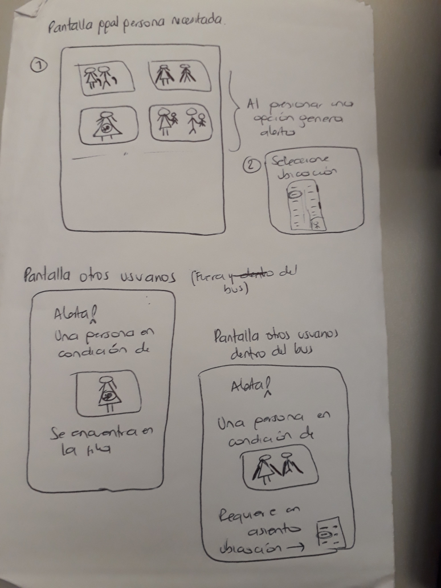 Pantalla ppal persona necesitada.
①
Al presionar una
opción genera
alerta
② Seleccione
ubicación
Pantalla otros usuarios (Fuera y dentro del
bus)
Alerta!
Una persona en
condición de
Se encuentra en
la fila
Pantalla otros usuarios
dentro del bus
Alerta!
Una persona en
condición de
Requiere un
asiento
ubicación →